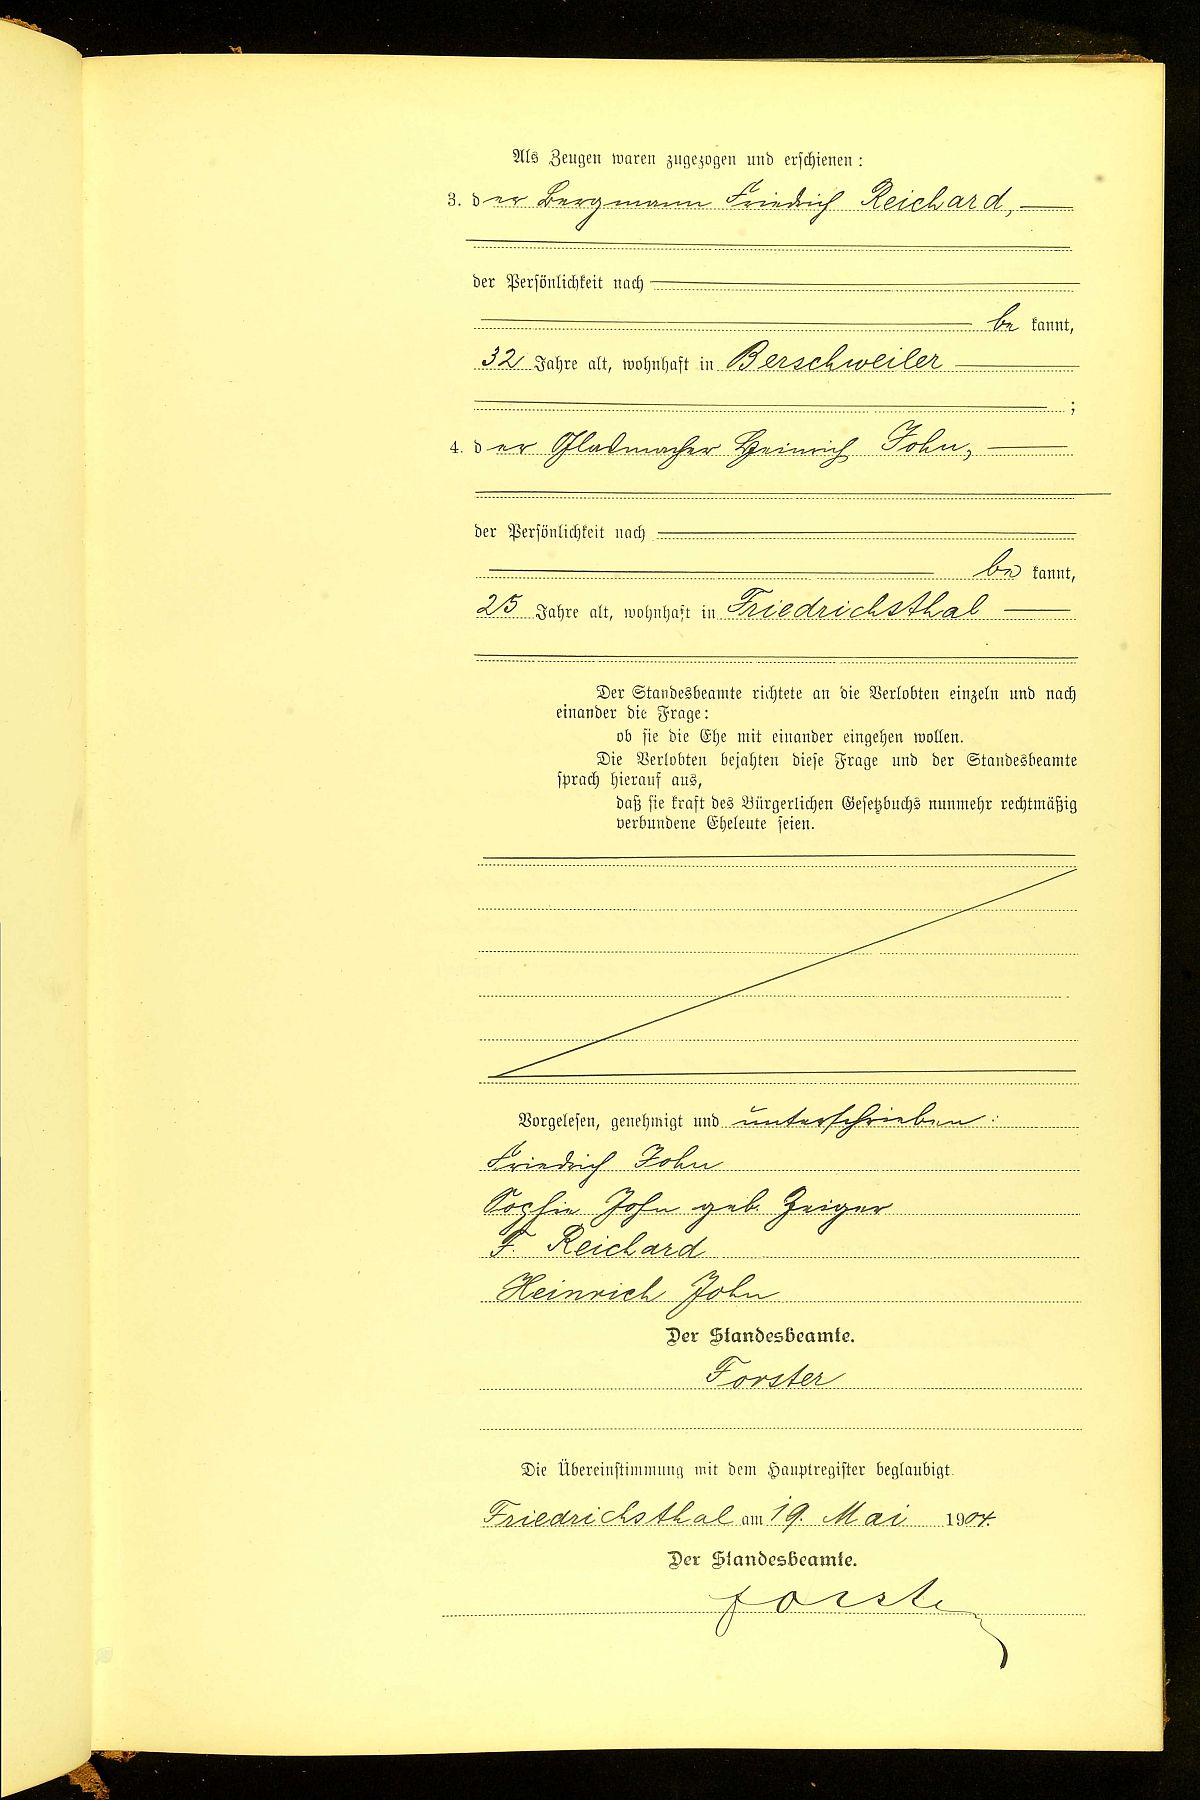 Als Zeugen waren zugezogen und erschienen:
3. der Bergmann Friedrich Reichard,
der Persönlichkeit nach
be kannt,
32 Jahre alt, wohnhaft in Berschweiler
;
4. der Glasmacher Heinrich John,
der Persönlichkeit nach
be kannt,
25 Jahre alt, wohnhaft in Friedrichsthal
Der Standesbeamte richtete an die Verlobten einzeln und nach
einander die Frage:
ob sie die Ehe mit einander eingehen wollen.
Die Verlobten bejahten diese Frage und der Standesbeamte
sprach hierauf aus,
daß sie kraft des Bürgerlichen Gesetzbuchs nunmehr rechtmäßig
verbundene Eheleute seien.
Vorgelesen, genehmigt und unterschrieben:
Friedrich John
Sophie John geb. Zeiger
F. Reichard
Heinrich John
Der Standesbeamte.
Forster
Die Übereinstimmung mit dem Hauptregister beglaubigt.
Friedrichsthal am 19. Mai 1904.
Der Standesbeamte.
Forster